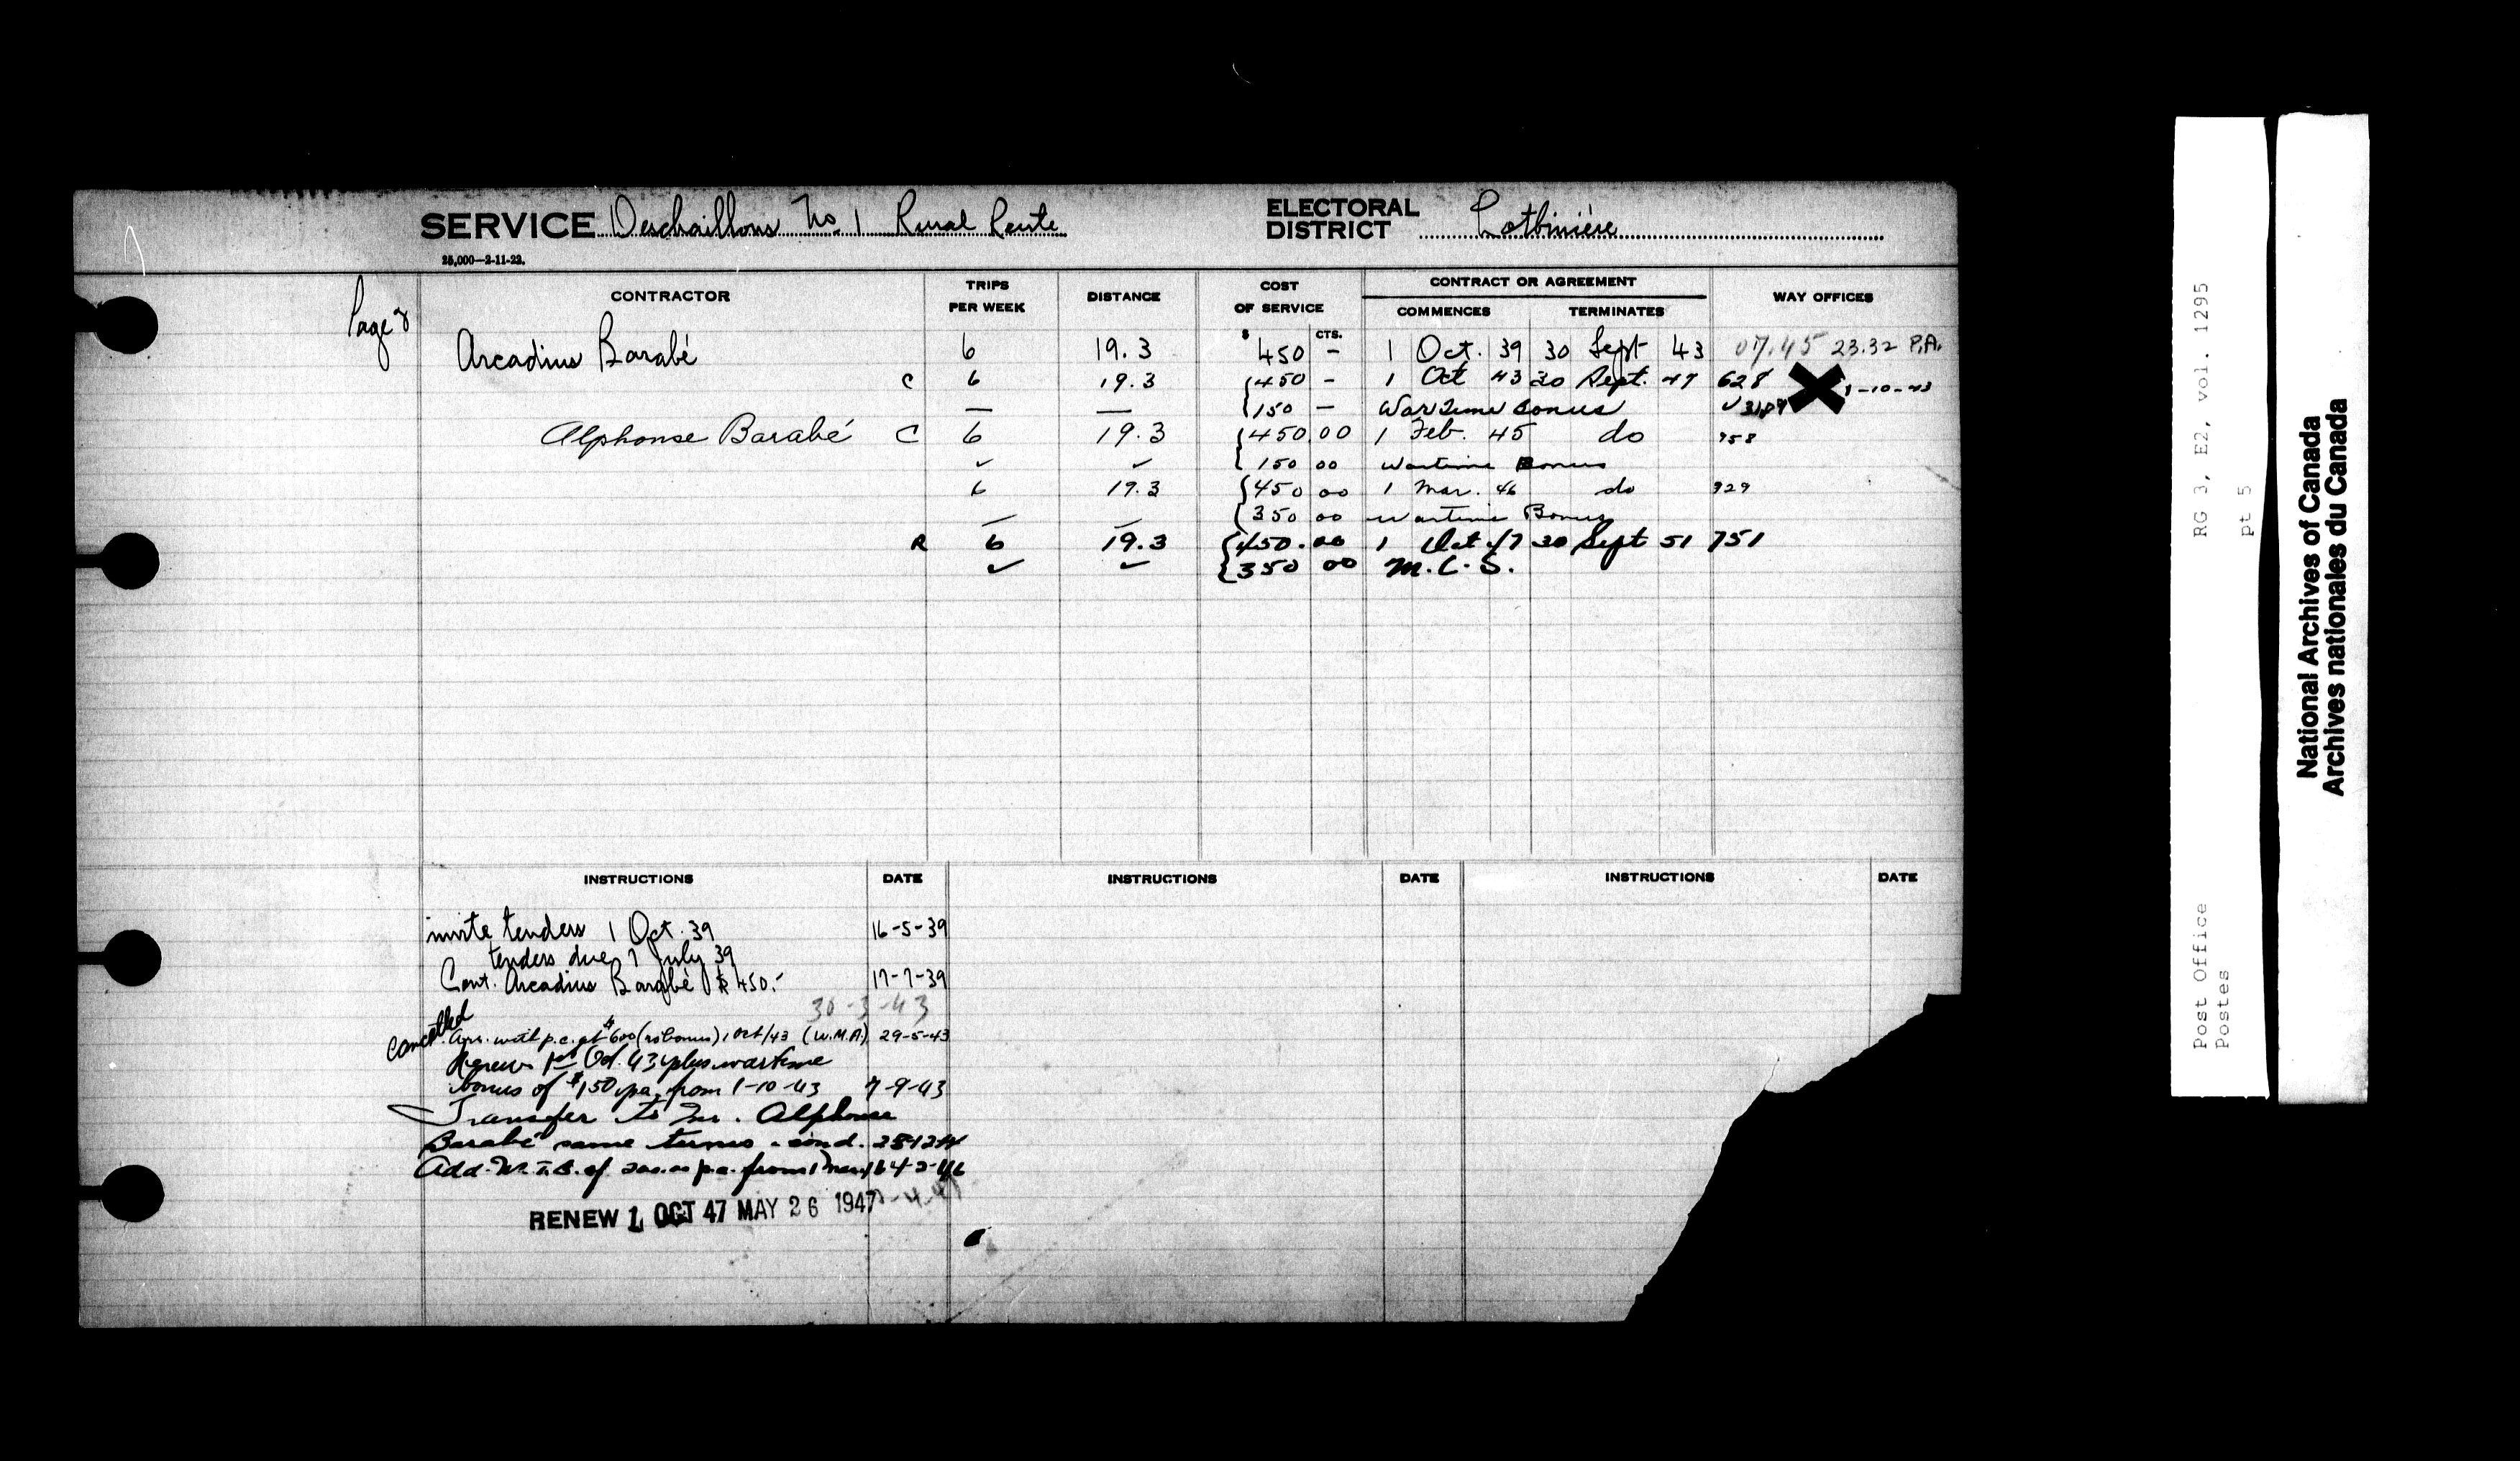 SERVICE Deschaillons No. 1 Rural Route
ELECTORAL DISTRICT Lotbinière
25,000—2-11-22.
Page 2
CONTRACTOR TRIPS PER WEEK DISTANCE COST OF SERVICE CONTRACT OR AGREEMENT WAY OFFICES
$ CTS. COMMENCES TERMINATES
Arcadius Barabé 6 19.3 450 - 1 Oct. 39 30 Sept 43 07.45 23.32 P.A.
C 6 19.3 {450 - 1 Oct 43 30 Sept. 47 628 1-10-43
— — {150 - Wartime Bonus
Alphonse Barabé C 6 19.3 {450 00 1 Feb. 45 do 758
✓ ✓ {150 00 Wartime Bonus
6 19.3 {450 00 1 Mar. 46 do 929
— — {350 00 Wartime Bonus
R 6 19.3 {450.00 1 Oct 47 30 Sept 51 751
✓ ✓ {350 00 M.C.S.
INSTRUCTIONS DATE INSTRUCTIONS DATE INSTRUCTIONS DATE
invite tenders 1 Oct. 39 16-5-39
tenders due 7 July 39
Cont. Arcadius Barabé $450.- 17-7-39
30-3-43
Cancelled
Arr. with p.c. at $600 (no bonus) 1 Oct/43 (W.M.A.) 29-5-43
Renew 1st Oct. 43 plus wartime
bonus of $150 pa. from 1-10-43 7-9-43
Transfer to Mr. Alphonse
Barabé same terms & cond.
Add. W.T.B. of 200.00 p.a. from 1 Mar/46 4-2-46
RENEW 1 OCT 47 MAY 26 1947
RG 3, E2, vol. 1295
pt 5
Post Office
Postes
National Archives of Canada
Archives nationales du Canada